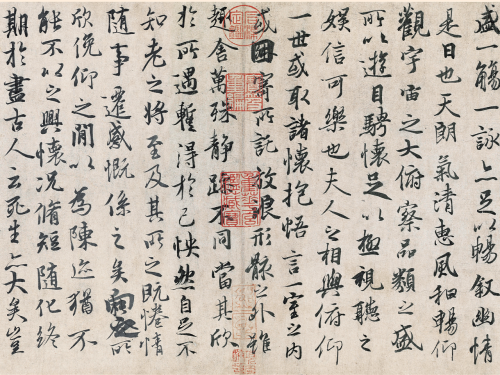 盛一觴一詠亦足以暢敘幽情
是日也天朗氣清惠風和暢仰
觀宇宙之大俯察品類之盛
所以遊目騁懷足以極視聽之
娛信可樂也夫人之相與俯仰
一世或取諸懷抱悟言一室之內
或因寄所託放浪形骸之外雖
趣舍萬殊靜躁不同當其欣
於所遇暫得於己怏然自足不
知老之將至及其所之既惓情
隨事遷感慨係之矣向之所
欣俛仰之間以為陳迹猶不
能不以之興懷況脩短隨化終
期於盡古人云死生亦大矣豈